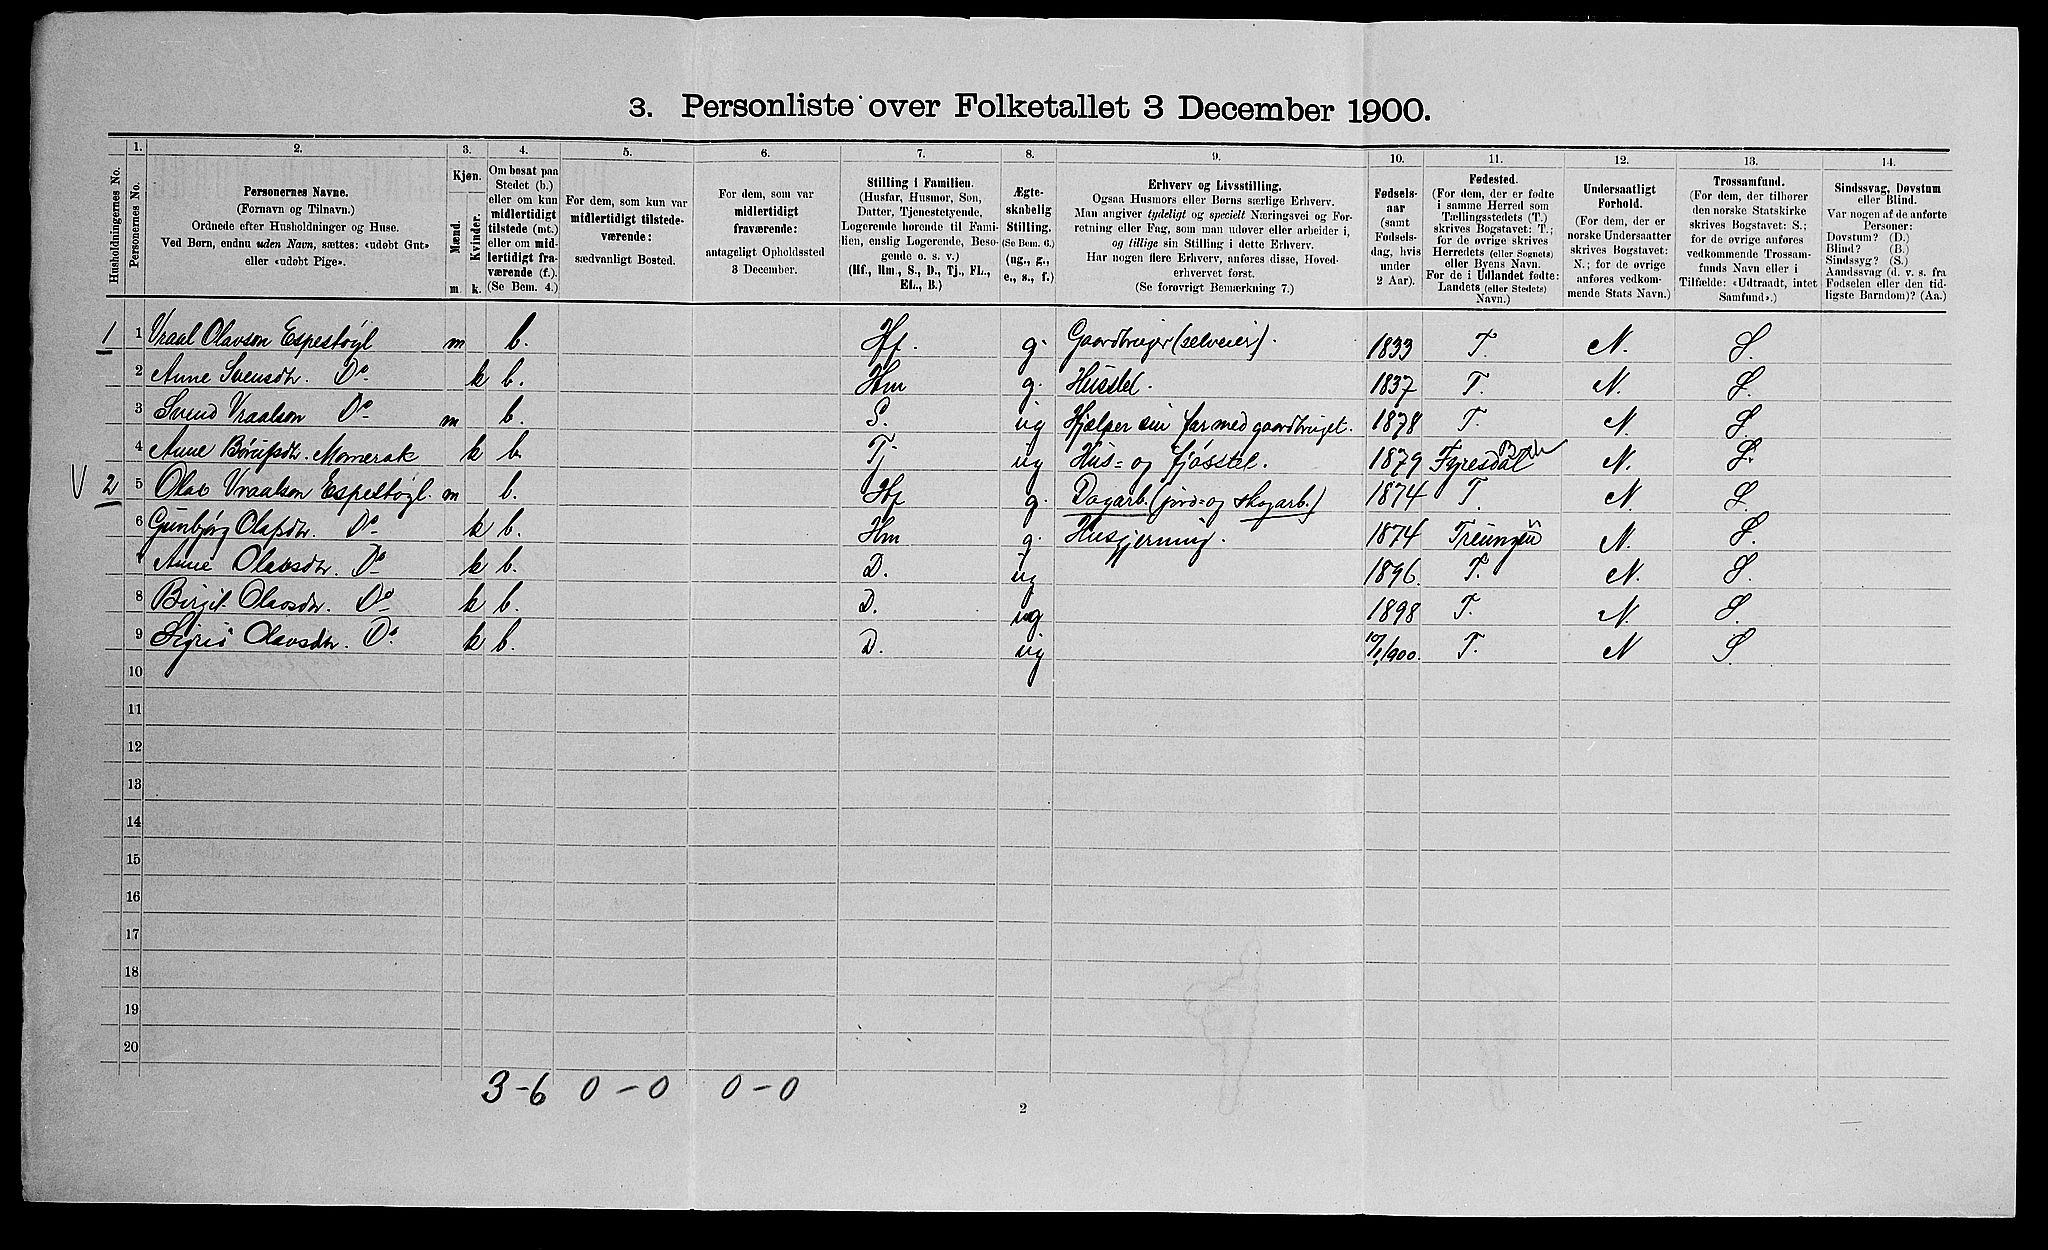 3. Personliste over Folketallet 3 December 1900.
Husholdningernes No.
1. Personernes No.
2. Personernes Navne.
(Fornavn og Tilnavn.)
Ordnede efter Husholdninger og Huse.
Ved Børn, endnu uden Navn, sættes: «udøbt Gut»
eller «udøbt Pige».
3. Kjøn.
Mænd. Kvinder.
m. k.
4. Om bosat paa
Stedet (b.)
eller om kun
midlertidigt
tilstede (mt.)
eller om mid-
lertidigt fra-
værende (f.).
(Se Bem. 4.)
5. For dem, som kun var
midlertidigt tilstede-
værende:
sædvanligt Bosted.
6. For dem, som var
midlertidigt
fraværende:
antageligt Opholdssted
3 December.
7. Stilling i Familien.
(Husfar, Husmor, Søn,
Datter, Tjenestetyende,
Logerende hørende til Fami-
lien, enslig Logerende, Besø-
gende o. s. v.)
(Hf., Hm., S., D., Tj., FL.,
EL., B.)
8. Ægte-
skabelig
Stilling.
(Se Bem. 6.)
(ug., g.,
e., s., f.)
9. Erhverv og Livsstilling.
Ogsaa Husmors eller Børns særlige Erhverv.
Man angiver tydeligt og specielt Næringsvei og For-
retning eller Fag, som man udøver eller arbeider i,
og tillige sin Stilling i dette Erhverv.
Har nogen flere Erhverv, anføres disse, Hoved-
erhvervet først.
(Se forøvrigt Bemærkning 7.)
10. Fødsels-
aar
(samt
Fødsels-
dag, hvis
under
2 Aar).
11. Fødested.
(For dem, der er fødte
i samme Herred som
Tællingsstedets (T.)
skrives Bogstavet: T.;
for de øvrige skrives
Herredets (eller Sognets)
eller Byens Navn.
For de i Udlandet fødte:
Landets (eller Stedets)
Navn.)
12. Undersaatligt
Forhold.
(For dem, der er
norske Undersaatter
skrives Bogstavet:
N.; for de øvrige
anføres vedkom-
mende Stats Navn.)
13. Trossamfund.
(For dem, der tilhører
den norske Statskirke
skrives Bogstavet: S.;
for de øvrige anføres
vedkommende Trossam-
funds Navn eller i
Tilfælde: «Udtraadt, intet
Samfund».)
14. Sindssvag, Døvstum
eller Blind.
Var nogen af de anførte
Personer:
Døvstum? (D.)
Blind? (B.)
Sindssyg? (S.)
Aandssvag (d. v. s. fra
Fødselen eller den tid-
ligste Barndom)? (Aa.)
1 1 Vraal Olavson Espestøgl m b. Hf. g. Gaardbruger (selveier). 1833 T. N. S.
2 Anne Svensdtr. Do k b. Hm g. Husstel. 1837 T. N. S.
3 Svend Vraalson Do m b. S. ug Hjælper sin far med gaardbruget. 1878 T. N. S.
4 Anne k b. Tj ug Hus- og fjøsstel. 1879 Fyresdal N. S.
V 2 5 Olav Vraalson Espestøgl. m b. Hf g. Dagarb. (jord- og skogarb.) 1874 T. N. S.
6 Gunbjørg Olafsdtr. Do k b. Hm g. Husgjerning. 1874 Treungen N. S.
7 Anne Olavsdtr. Do k b. D. ug 1896. T. N. S.
8 Birgit Olavsdtr. Do k b. D. ug 1898 T. N. S.
9 Sigrid Olavsdtr. Do. k b. D. ug 10/1 1900. T. N S.
10
11
12
13
14
15
16
17
18
19
20
3-6 0-0 0-0
2